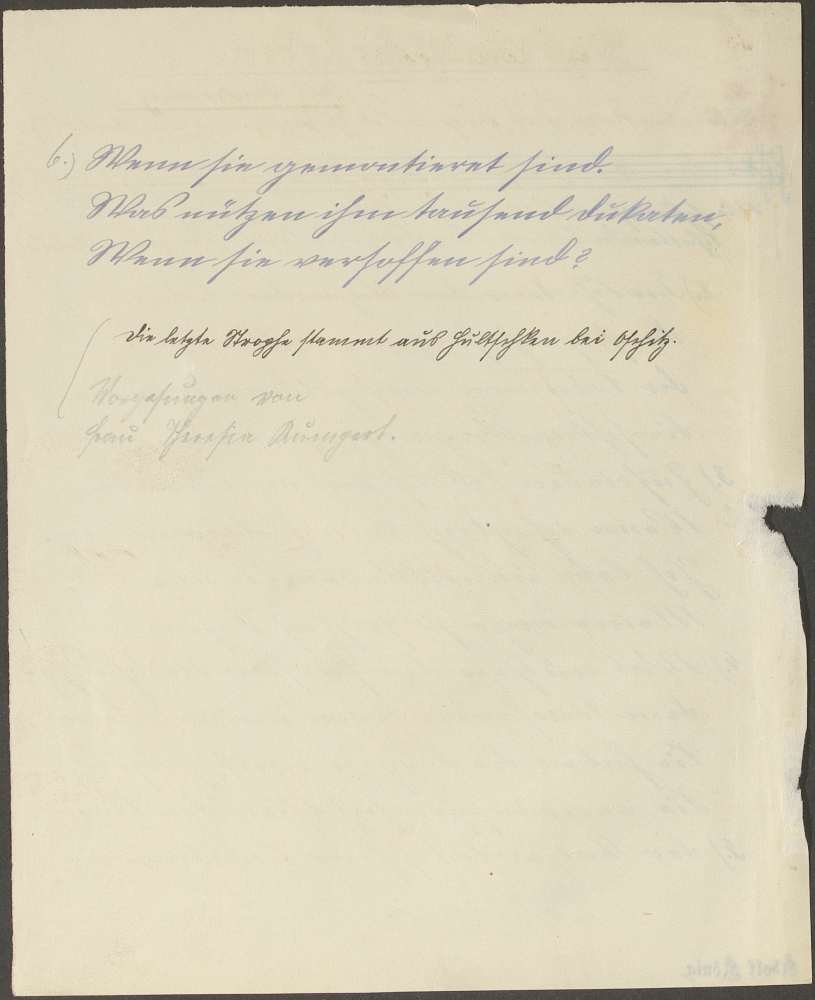 6.) Wenn sie gemontieret sind.
Was nützen ihm tausend Dukaten,
Wenn sie versoffen sind?
Die letzte Strophe stammt aus Hultschken bei Oschitz.
Vorgesungen von
Frau Theresia